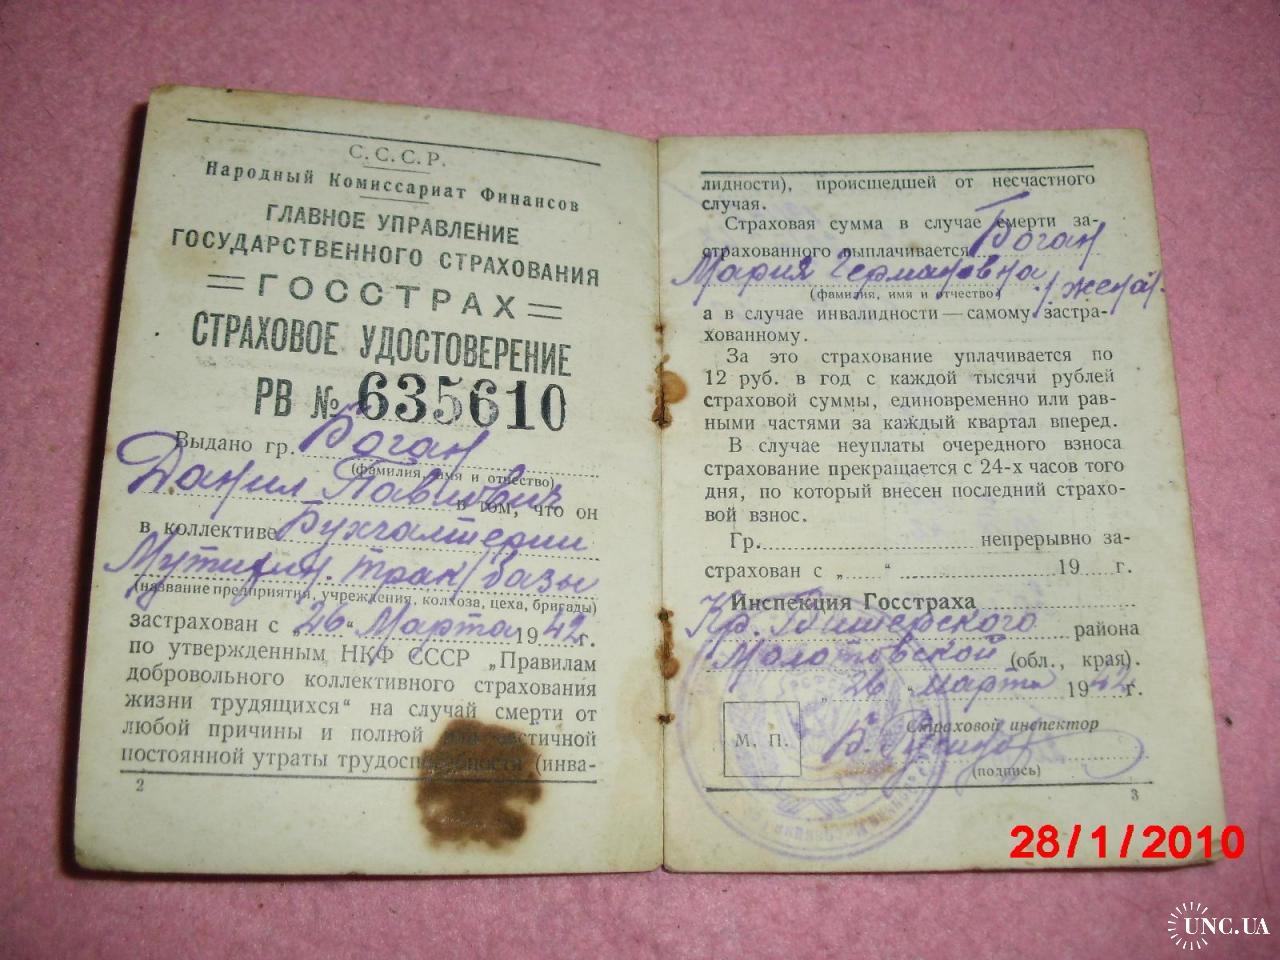 С. С. С. Р.
Народный Комиссариат Финансов
ГЛАВНОЕ УПРАВЛЕНИЕ
ГОСУДАРСТВЕННОГО СТРАХОВАНИЯ
= ГОССТРАХ =
СТРАХОВОЕ УДОСТОВЕРЕНИЕ
РВ № 635610
Выдано гр. Боган
(фамилия, имя и отчество)
Данил Павлович в том, что он
в коллективе Бухгалтерии
базы
(название предприятия, учреждения, колхоза, цеха, бригады)
застрахован с „26“ Марта 1942 г.
по утвержденным НКФ СССР „Правилам
добровольного коллективного страхования
жизни трудящихся“ на случай смерти от
любой причины и полной или частичной
постоянной утраты трудоспособности (инва-
2
лидности), происшедшей от несчастного
случая.
Страховая сумма в случае смерти за-
страхованного выплачивается Боган
Мария Германовна /жена/.
(фамилия, имя и отчество)
а в случае инвалидности — самому застра-
хованному.
За это страхование уплачивается по
12 руб. в год с каждой тысячи рублей
страховой суммы, единовременно или рав-
ными частями за каждый квартал вперед.
В случае неуплаты очередного взноса
страхование прекращается с 24-х часов того
дня, по который внесен последний страхо-
вой взнос.
Гр. непрерывно за-
страхован с „ “ 19 г.
Инспекция Госстраха
Кр. Вишерского района
Молотовской (обл., края).
„26“ марта 1942 г.
Страховой инспектор
М. П.
(подпись)
3
28/1/2010
UNC.UA